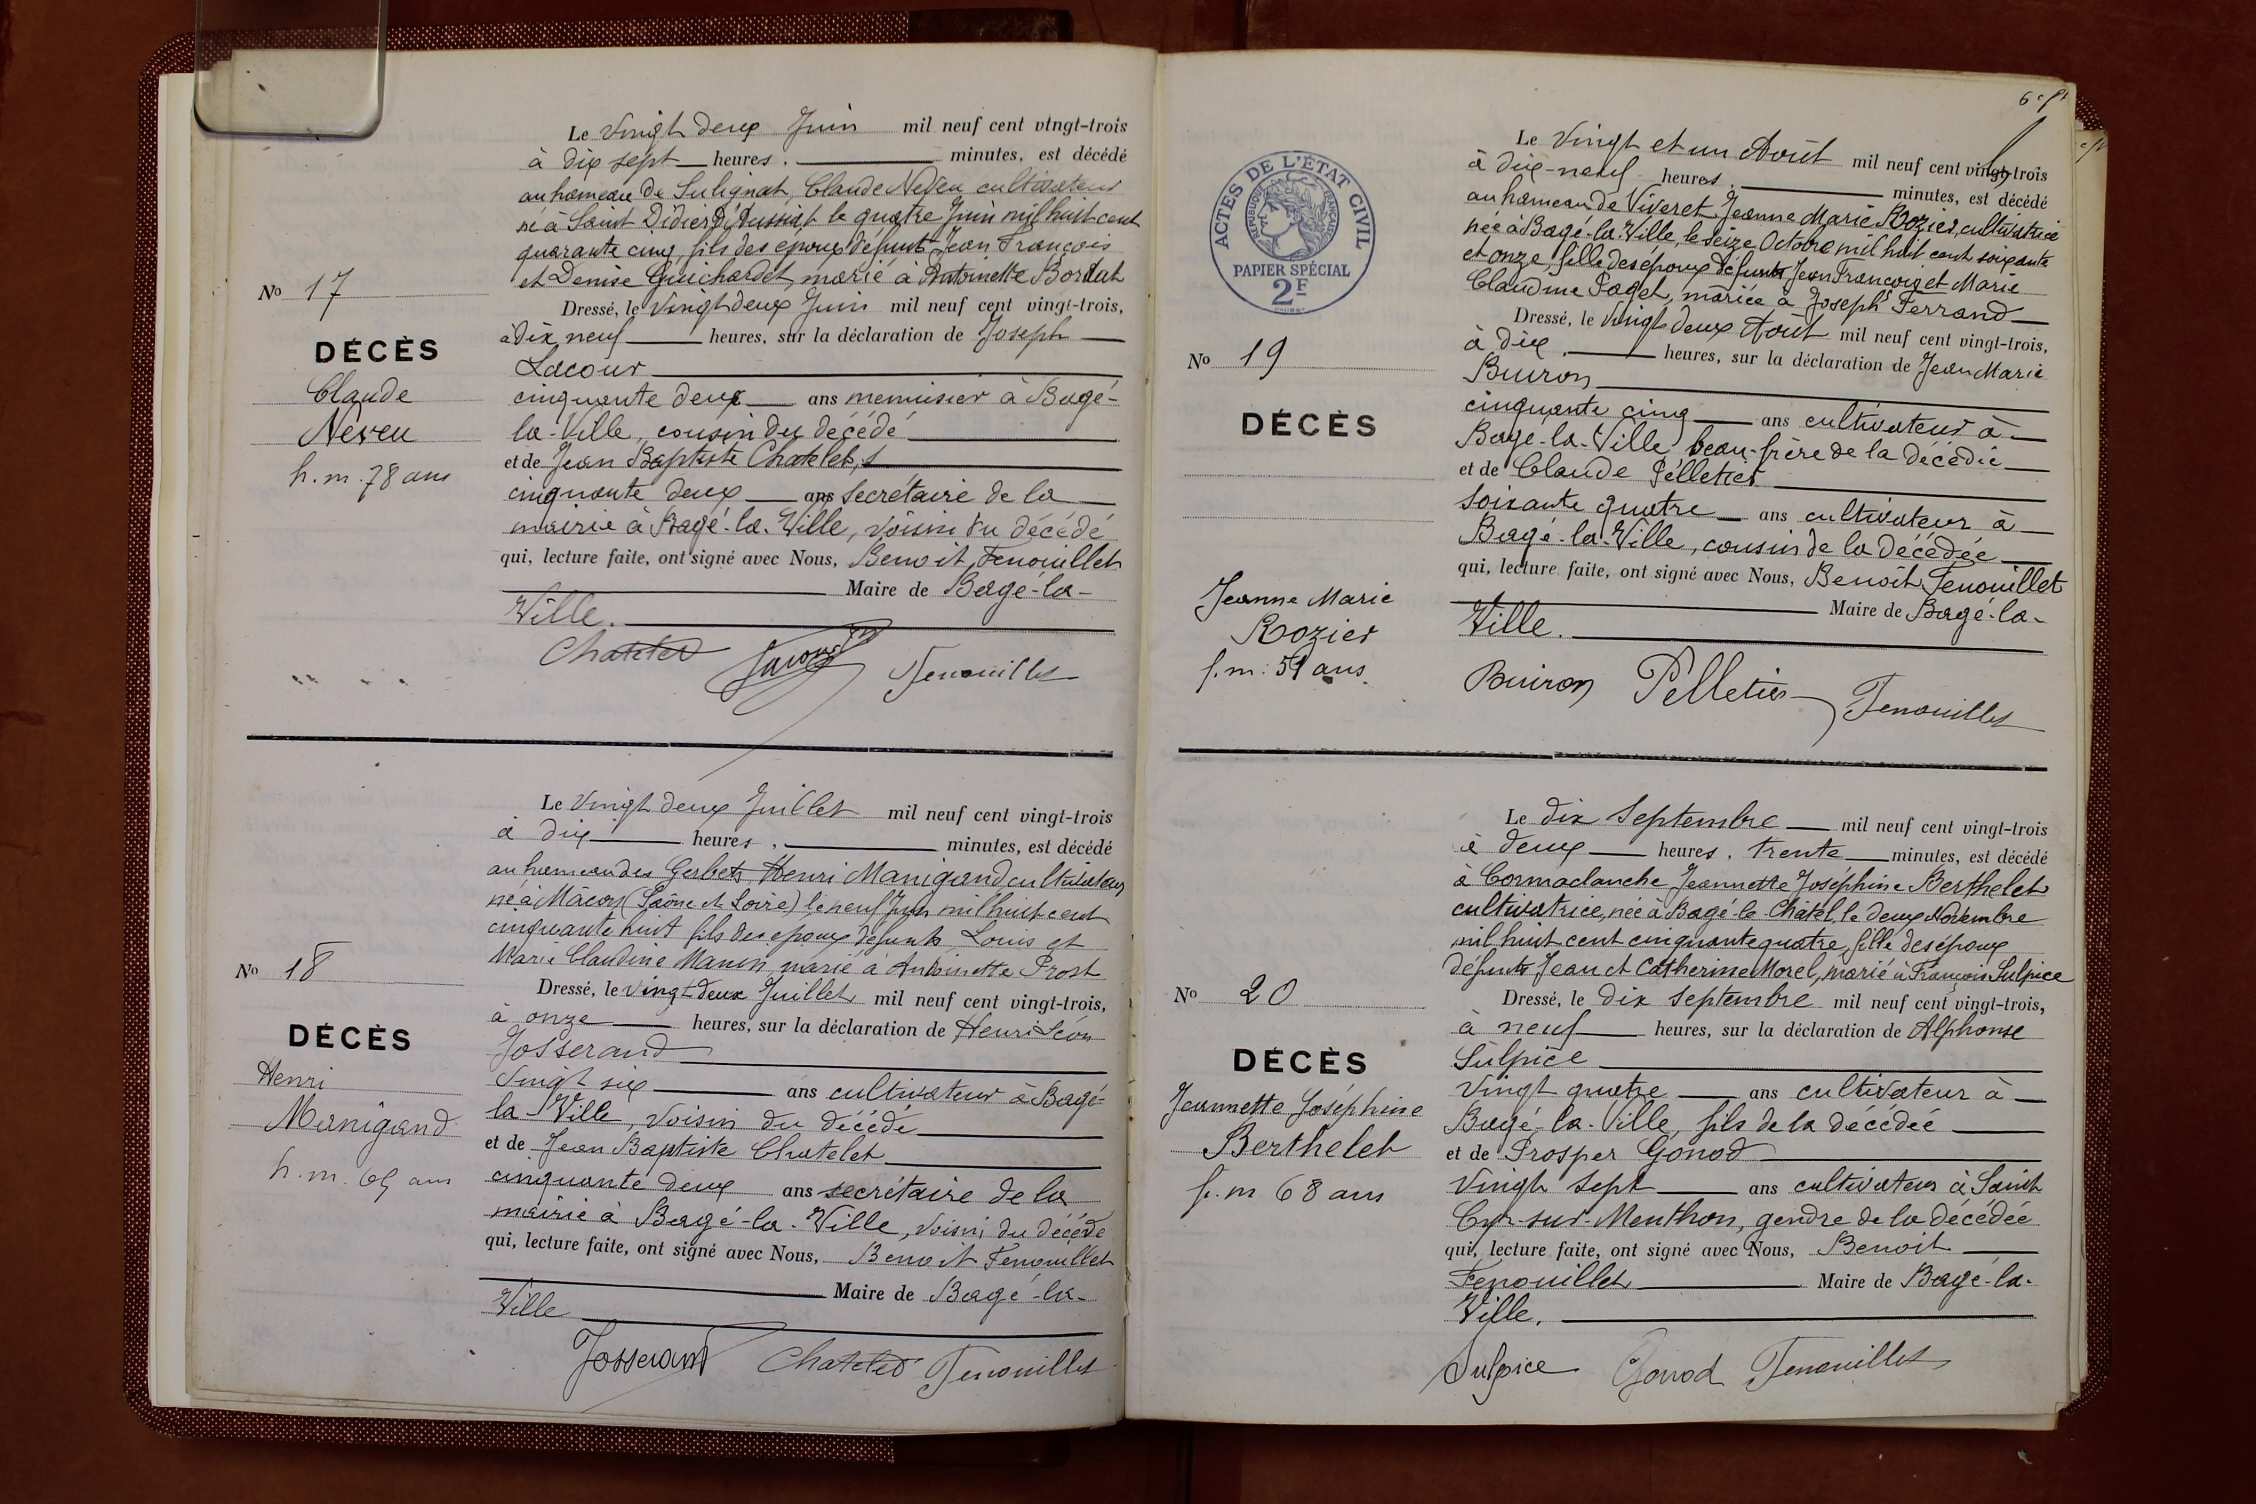 Le vingt deux Juin mil neuf cent vingt-trois
à dix sept heures, minutes, est décédé
au hameau de Sulignat, Claude Neveu cultivateur
né à Saint Didier d'Aussiat le quatre Juin mil huit cent
quarante cinq, fils des époux défunts Jean François
et Denise Guichardet, marié à Antoinette Bordat
No 17
DÉCÈS
Claude
Neveu
h. m. 78 ans
Dressé, le vingt deux Juin mil neuf cent vingt-trois,
à dix neuf heures, sur la déclaration de Joseph
Lacour
cinquante deux ans menuisier à Bagé-
la-Ville, cousin du décédé
et de Jean Baptiste Chatelet,
cinquante deux ans secrétaire de la
mairie à Bagé-la-Ville, voisin du décédé
qui, lecture faite, ont signé avec Nous, Benoit Fenouillet
Maire de Bagé-la-
Ville.
Chatelet Lacour Fenouillet
Le vingt deux Juillet mil neuf cent vingt-trois
à dix heures, minutes, est décédé
au hameau des Gerbets, Henri Manigand cultivateur
né à Mâcon (Saône et Loire) le neuf Juin mil huit cent
cinquante huit fils des époux défunts Louis et
Marie Claudine marié à Antoinette Prost
No 18
DÉCÈS
Henri
Manigand
h. m. 65 ans
Dressé, le vingt deux Juillet mil neuf cent vingt-trois,
à onze heures, sur la déclaration de Henri Léon
Josserand
vingt six ans cultivateur à Bagé-
la Ville, voisin du décédé
et de Jean Baptiste Chatelet
cinquante deux ans secrétaire de la
mairie à Bagé-la-Ville, voisin du décédé
qui, lecture faite, ont signé avec Nous, Benoit Fenouillet
Maire de Bagé-la-
Ville
Josserand Chatelet Fenouillet
ACTES DE L'ÉTAT CIVIL
RÉPUBLIQUE FRANÇAISE
PAPIER SPÉCIAL
2F
Le vingt et un Août mil neuf cent vingt-trois
à dix-neuf heures, minutes, est décédé
au hameau de Viveret Jeanne Marie Rozier, cultivatrice
née à Bagé-la-Ville, le seize Octobre mil huit cent soixante
et onze, fille des époux défunts Jean François et Marie
Claudine Paget, mariée à Joseph Ferrand
No 19
DÉCÈS
Jeanne Marie
Rozier
f. m. 51 ans
Dressé, le vingt deux Août mil neuf cent vingt-trois,
à dix heures, sur la déclaration de Jean Marie
Buiron
cinquante cinq ans cultivateur à
Bagé-la-Ville, beau-frère de la décédée
et de Claude Pelletier
soixante quatre ans cultivateur à
Bagé-la-Ville, cousin de la décédée
qui, lecture faite, ont signé avec Nous, Benoit Fenouillet
Maire de Bagé-la-
Ville.
Buiron Pelletier Fenouillet
Le dix Septembre mil neuf cent vingt-trois
à deux heures, trente minutes, est décédé
à Cormaclanche Jeannette Joséphine Berthelet
cultivatrice, née à Bagé-le-Châtel, le deux Novembre
mil huit cent cinquante quatre, fille des époux
défunts Jean et Catherine Morel, marié à François Sulpice
No 20
DÉCÈS
Jeannette Joséphine
Berthelet
f. m 68 ans
Dressé, le dix septembre mil neuf cent vingt-trois,
à neuf heures, sur la déclaration de Alphonse
Sulpice
vingt quatre ans cultivateur à
Bagé-la-Ville, fils de la décédée
et de Prosper Gonod
vingt sept ans cultivateur à Saint
Cyr-sur-Menthon, gendre de la décédée
qui, lecture faite, ont signé avec Nous, Benoit
Fenouillet Maire de Bagé-la-
Ville.
Sulpice Gonod Fenouillet